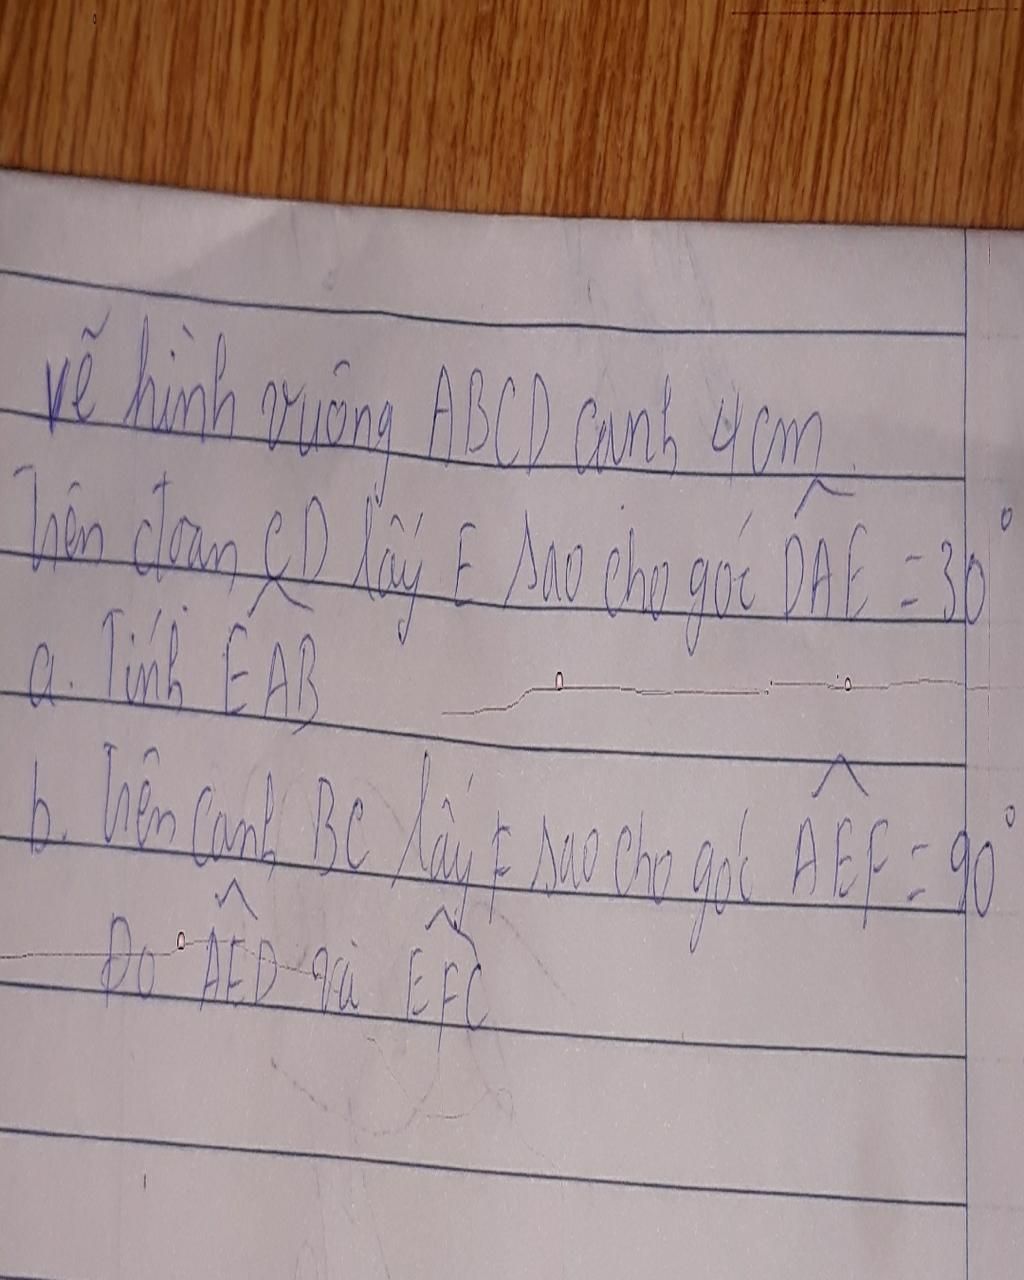 vẽ hình vuông ABCD cạnh 4 cm
Trên đoạn CD lấy E sao cho góc DAE = 30°
a. Tính EAB
b. Trên cạnh BC lấy F sao cho góc AEF = 90°
Đo AED và EFC